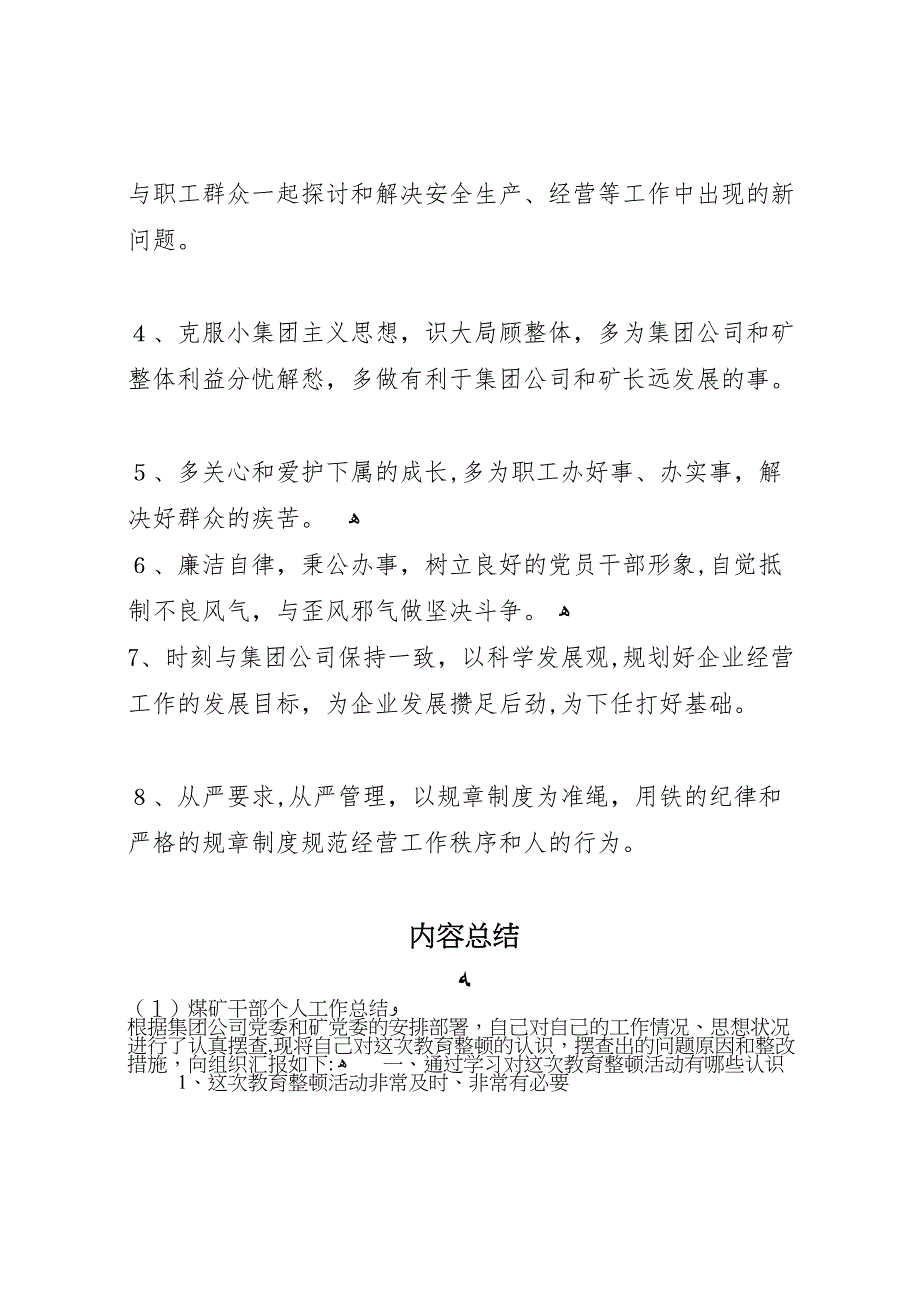 与职工群众一起探讨和解决安全生产、经营等工作中出现的新
问题。
４、克服小集团主义思想，识大局顾整体，多为集团公司和矿
整体利益分忧解愁，多做有利于集团公司和矿长远发展的事。
５、多关心和爱护下属的成长,多为职工办好事、办实事，解
决好群众的疾苦。 ﻫ
６、廉洁自律，秉公办事，树立良好的党员干部形象,自觉抵
制不良风气，与歪风邪气做坚决斗争。 ﻫ
7、时刻与集团公司保持一致，以科学发展观,规划好企业经营
工作的发展目标，为企业发展攒足后劲,为下任打好基础。
８、从严要求,从严管理，以规章制度为准绳，用铁的纪律和
严格的规章制度规范经营工作秩序和人的行为。
内容总结
ﻪ
（１）煤矿干部个人工作总结ﻭ
根据集团公司党委和矿党委的安排部署，自己对自己的工作情况、思想状况
进行了认真摆查,现将自己对这次教育整顿的认识，摆查出的问题原因和整改
措施，向组织汇报如下: ﻫ 一、通过学习对这次教育整顿活动有哪些认识
1、这次教育整顿活动非常及时、非常有必要